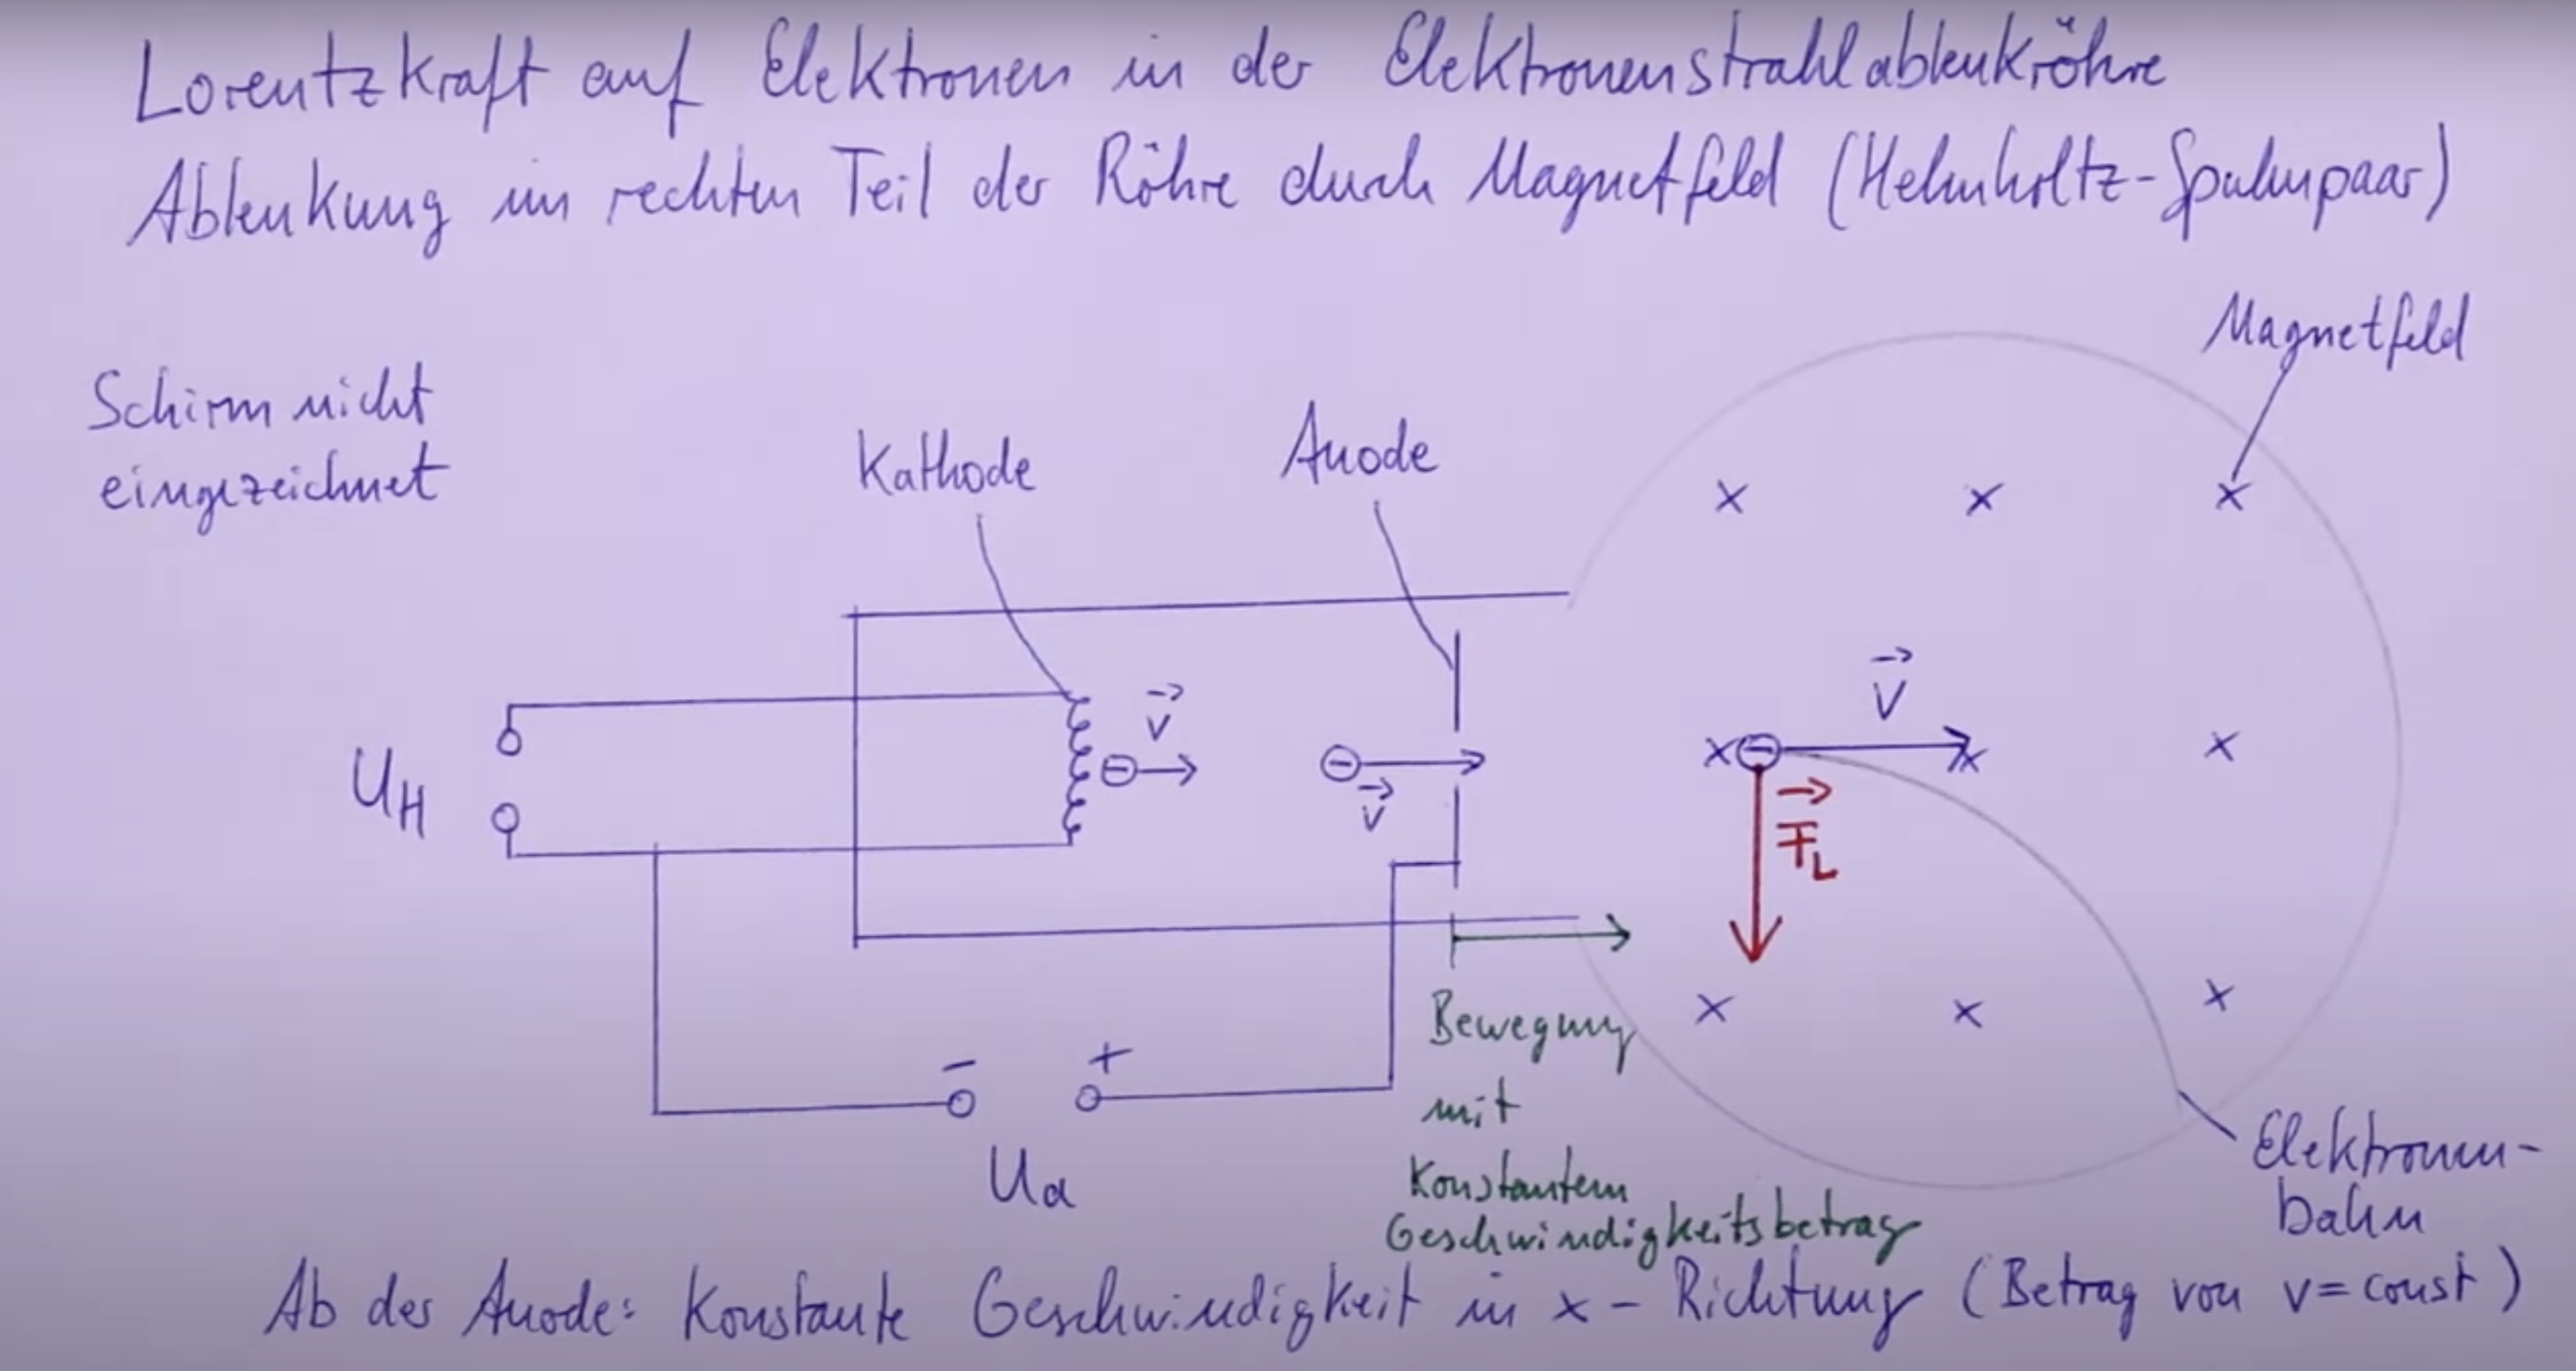 Lorentzkraft auf Elektronen in der Elektronenstrahlablenkröhre
Ablenkung im rechten Teil der Röhre durch Magnetfeld (Helmholtz-Spulenpaar)
Magnetfeld
Schirm nicht
eingezeichnet
Kathode
Anode
x x x
v
v
U_H
⊖
⊖
v
x ⊖ x x
F_L
x x x
Bewegung
mit
konstantem
Geschwindigkeitsbetrag
- +
U_a
Elektronen-
bahn
Ab der Anode: Konstante Geschwindigkeit in x-Richtung (Betrag von v = const)